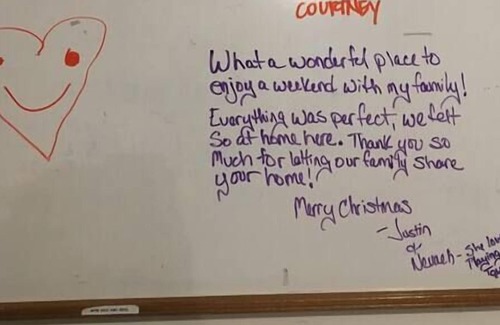 COURTNEY
What a wonderful place to
enjoy a weekend with my family!
Everything was perfect, we felt
So at home here. Thank you so
Much for letting our family share
your home!
Merry Christmas
- Justin
&
Nevaeh - She
Playing